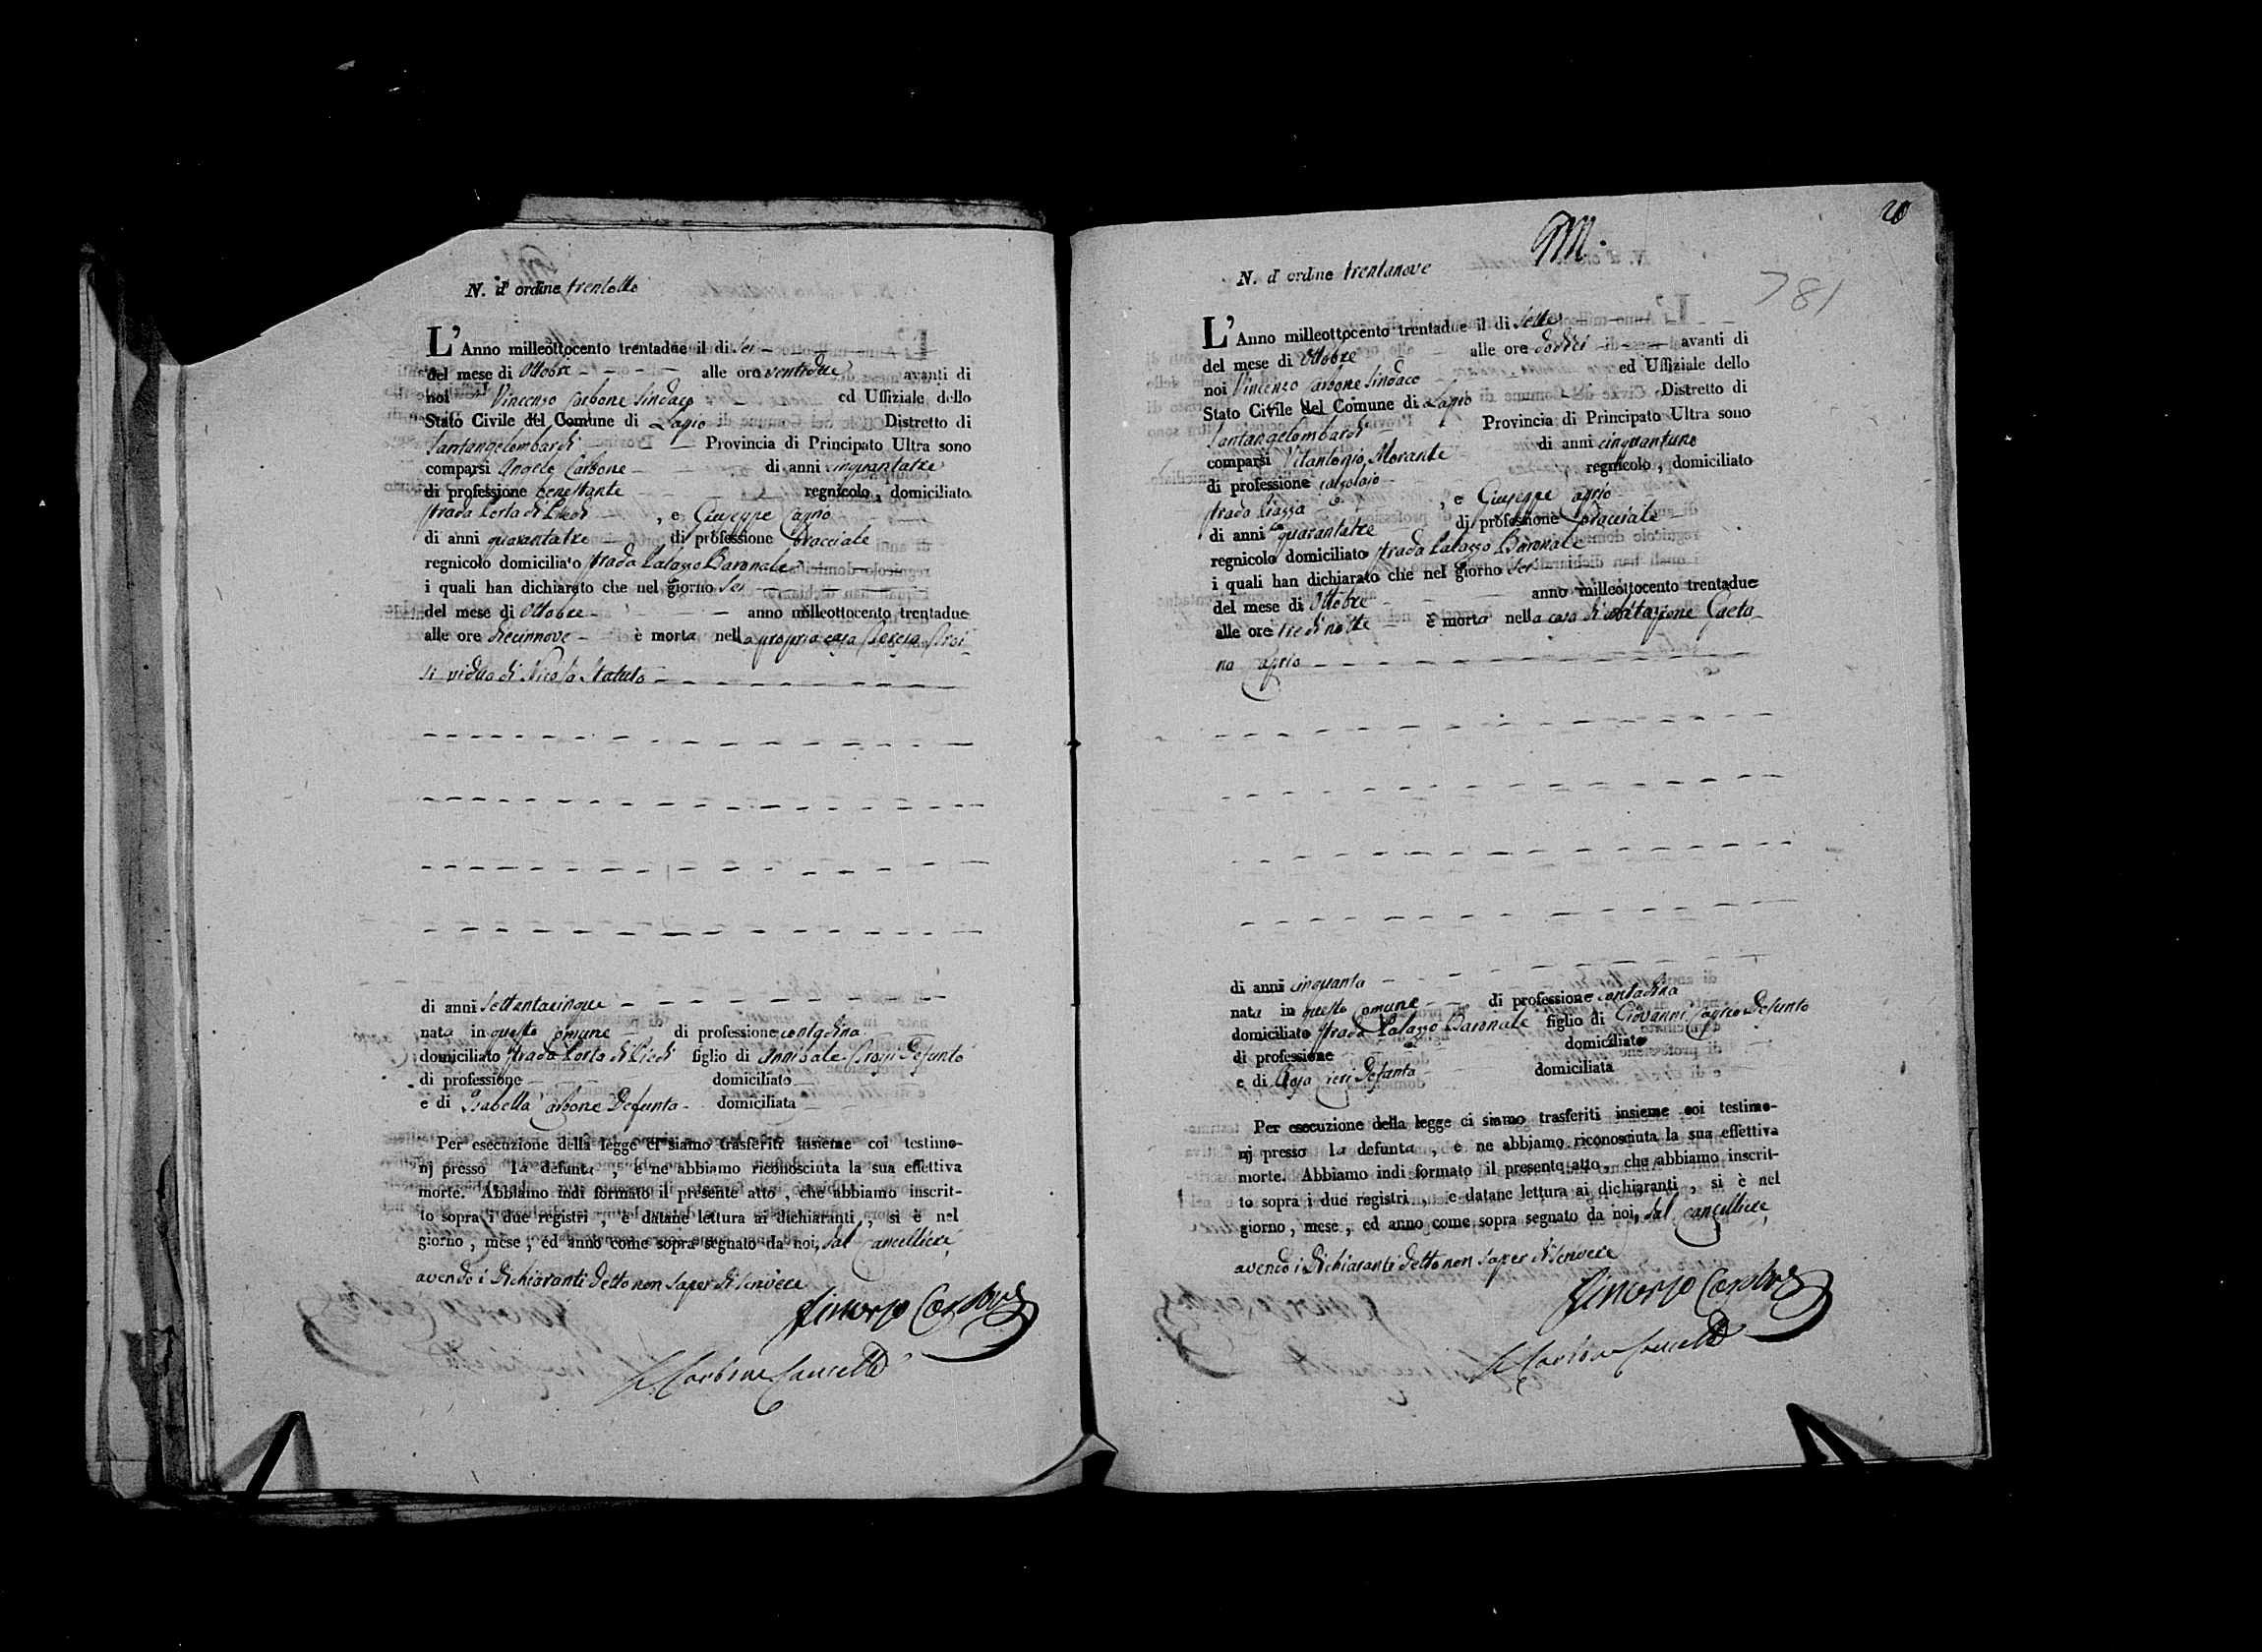 N. d' ordine trentotto
L'Anno milleottocento trentadue il di Sei
del mese di Ottobre alle ore ventidue avanti di
noi Vincenzo Carbone Sindaco ed Uffiziale dello
Stato Civile del Comune di Lapio Distretto di
Santangelombardi Provincia di Principato Ultra sono
comparsi Angelo Carbone di anni cinquantatre
di professione benestante regnicolo, domiciliato
strada Porta di Piedi , e Giuseppe Caprio
di anni quarantatre di professione bracciale
regnicolo domiciliato strada Palazzo Baronale
i quali han dichiarato che nel giorno Sei
del mese di Ottobre anno milleottocento trentadue
alle ore diecinnove è morta nella propria casa
vidua di Nicola Statuto
di anni Settantacinque
nata in questo Comune di professione contadina
domiciliato strada Porta di Piedi figlio di Annibale Defunto
di professione domiciliato
e di Isabella Carbone Defunta domiciliata
Per esecuzione della legge ci siamo trasferiti insieme coi testimo-
nj presso la defunta , e ne abbiamo riconosciuta la sua effettiva
morte. Abbiamo indi formato il presente atto , che abbiamo inscrit-
to sopra i due registri , e datane lettura ai dichiaranti , si è nel
giorno , mese , ed anno come sopra segnato da noi, dal Cancelliere
avendo i Dichiaranti detto non saper di scrivere
Vincenzo Carbone
Carbone Cancell
M.
20
781
N. d' ordine trentanove
L'Anno milleottocento trentadue il di Sette
del mese di Ottobre alle ore dodici avanti di
noi Vincenzo Carbone Sindaco ed Uffiziale dello
Stato Civile del Comune di Lapio Distretto di
Santangelombardi Provincia di Principato Ultra sono
comparsi Vitantonio Morante di anni cinquantuno
di professione calzolaio regnicolo, domiciliato
strada Piazza , e Giuseppe Caprio
di anni quarantatre di professione bracciale
regnicolo domiciliato strada Palazzo Baronale
i quali han dichiarato che nel giorno Sei
del mese di Ottobre anno milleottocento trentadue
alle ore tre di notte è morta nella casa di abitazione Gaeta-
na Caprio
di anni cinquanta
nata in questo Comune di professione contadina
domiciliato strada Palazzo Baronale figlio di Giovanni Caprio Defunto
di professione domiciliato
e di Rosa Defunta domiciliata
Per esecuzione della legge ci siamo trasferiti insieme coi testimo-
nj presso la defunta , e ne abbiamo riconosciuta la sua effettiva
morte. Abbiamo indi formato il presente atto , che abbiamo inscrit-
to sopra i due registri , e datane lettura ai dichiaranti , si è nel
giorno , mese , ed anno come sopra segnato da noi, dal Cancelliere
avendo i Dichiaranti detto non saper di scrivere
Vincenzo Carbone
Carbone Cancell